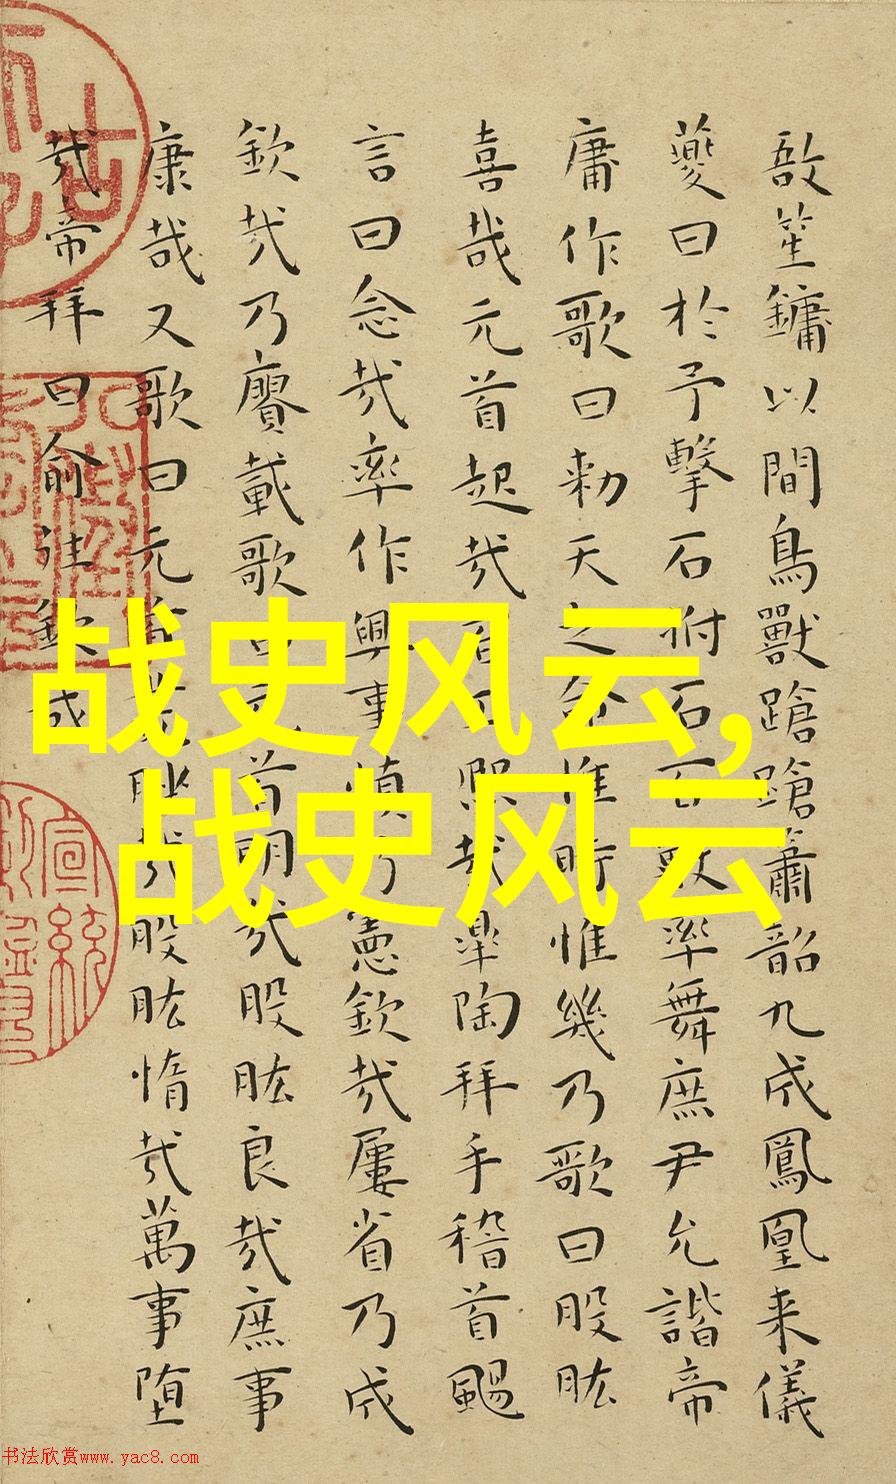 敔笙鏞以間鳥獸蹌蹌簫韶九成鳳凰来儀
夔曰於予擊石拊石百獸率舞庶尹允諧帝
庸作歌曰勑天之命惟時惟幾乃歌曰股肱
喜哉元首起哉百工熙哉皋陶拜手稽首颺
言曰念哉率作興事慎乃憲欽哉屢省乃成
欽哉乃賡載歌曰元首明哉股肱良哉庶事
康哉又歌曰元首叢脞哉股肱惰哉萬事堕
哉帝拜曰俞往欽哉
战史风云,
战史风云
宣統
书法欣赏www.yac8.com